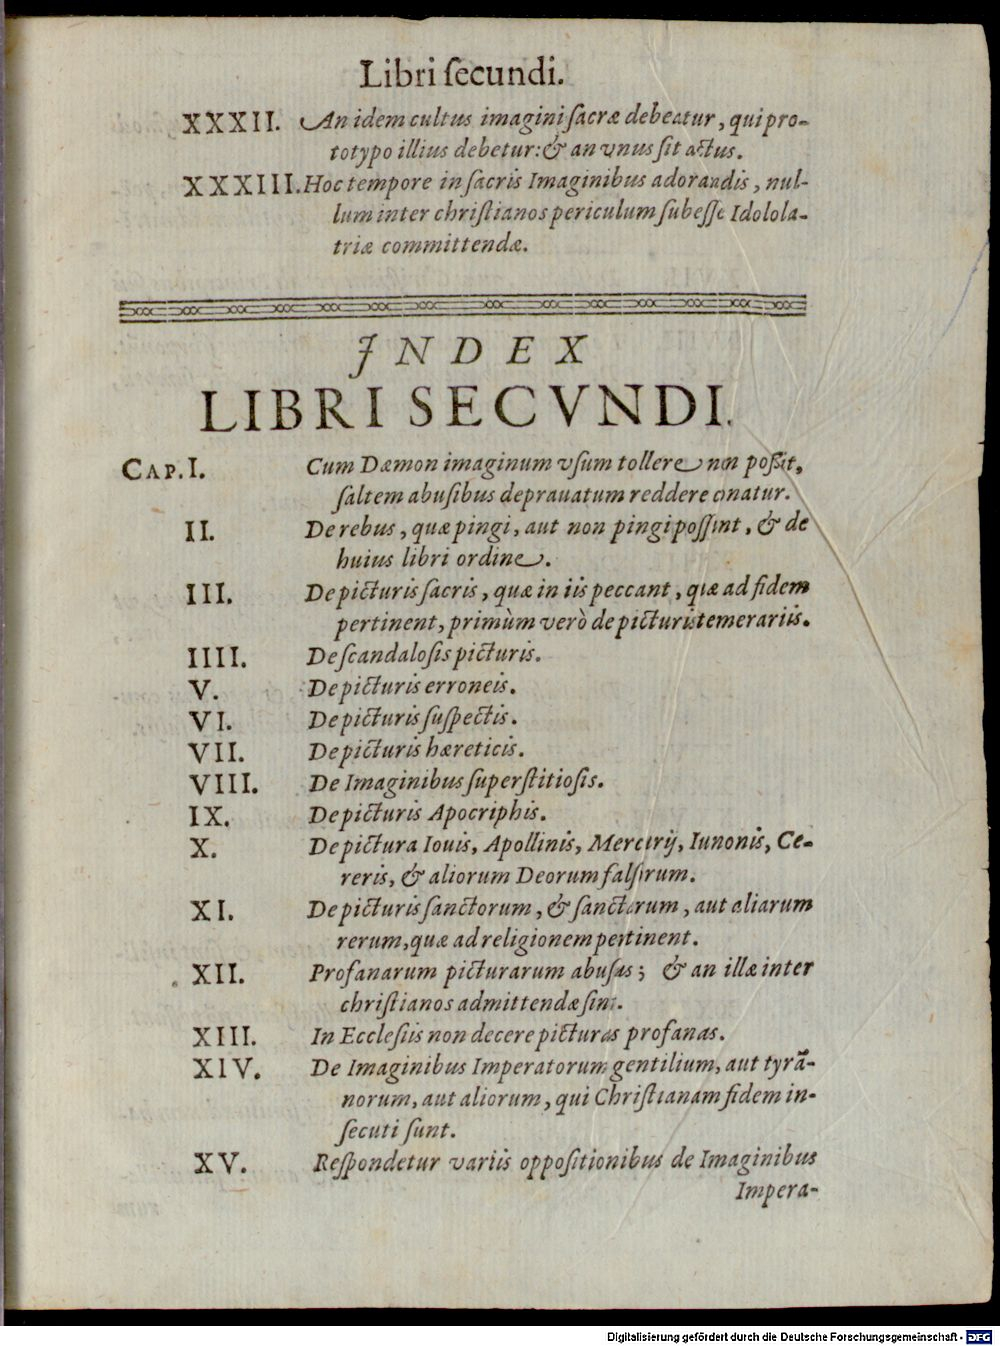 Libri ſecundi.
XXXII. An idem cultus imagini ſacræ debeatur, qui pro-
totypo illius debetur: & an vnus ſit actus.
XXXIII. Hoc tempore in ſacris Imaginibus adorandis, nul-
lum inter chriſtianos periculum ſubeſſe Idolola-
triæ committendæ.
INDEX
LIBRI SECVNDI.
CAP. I. Cum Dæmon imaginum vſum tollere non poſſit,
ſaltem abuſibus deprauatum reddere conatur.
II. De rebus, quæ pingi, aut non pingi poſſint, & de
huius libri ordine.
III. De picturis ſacris, quæ in iis peccant, quæ ad fidem
pertinent, primùm verò de picturis temerariis.
IIII. De ſcandaloſis picturis.
V. De picturis erroneis.
VI. De picturis ſuſpectis.
VII. De picturis hæreticis.
VIII. De Imaginibus ſuperſtitioſis.
IX. De picturis Apocriphis.
X. De pictura Iouis, Apollinis, Mercurij, Iunonis, Ce-
reris, & aliorum Deorum falſorum.
XI. De picturis ſanctorum, & ſanctarum, aut aliarum
rerum, quæ ad religionem pertinent.
XII. Profanarum picturarum abuſus; & an illæ inter
chriſtianos admittendæ ſint.
XIII. In Eccleſiis non decere picturas profanas.
XIV. De Imaginibus Imperatorum gentilium, aut tyrã-
norum, aut aliorum, qui Chriſtianam fidem in-
ſecuti ſunt.
XV. Reſpondetur variis oppoſitionibus de Imaginibus
Impera-
Digitalisierung gefördert durch die Deutsche Forschungsgemeinschaft - DFG